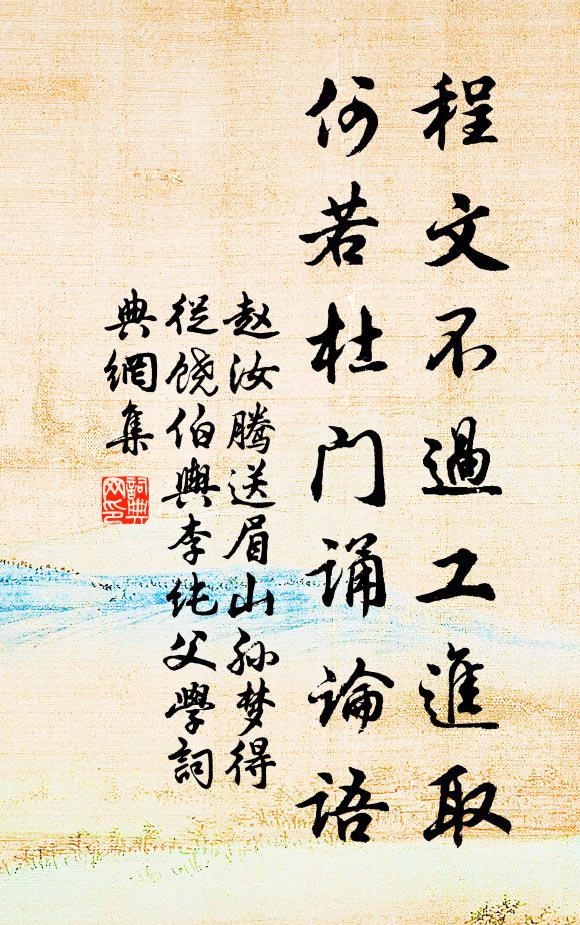 程文不過工進取
何若杜门诵論语
赵汝腾送眉山孙梦得
從饶伯興李纯父學詞
典網集
詞典网印